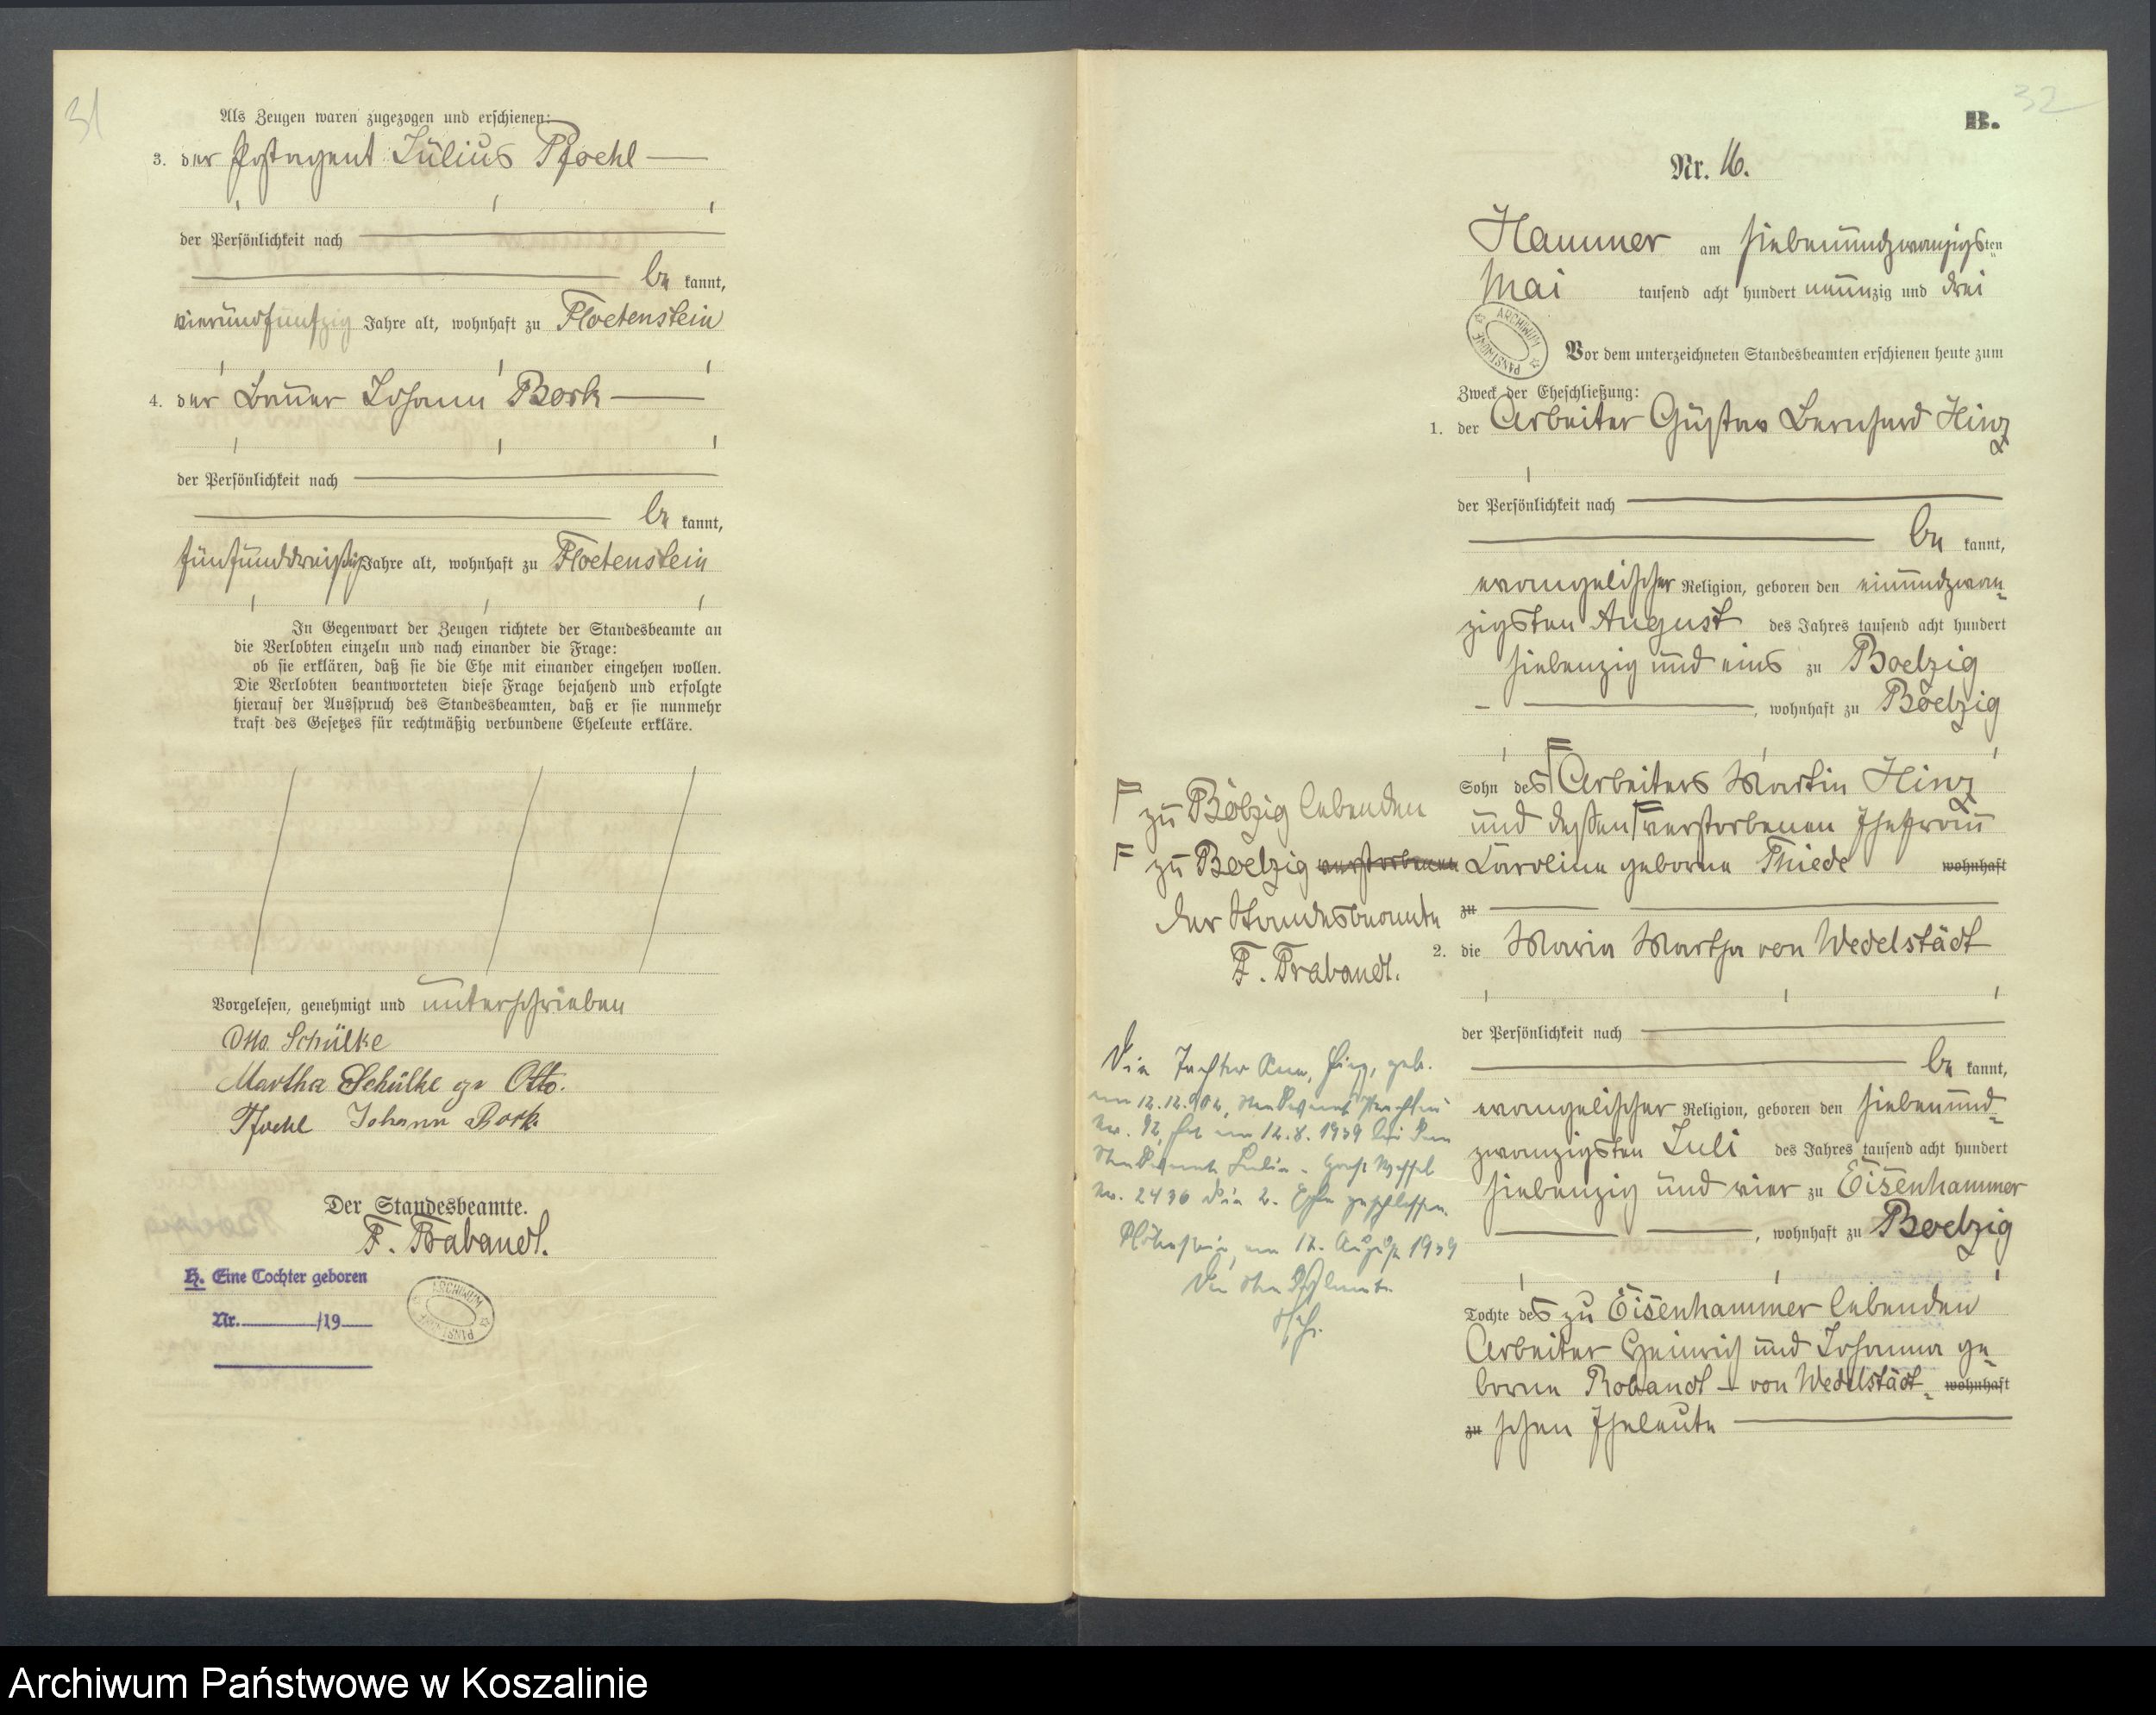 31
Als Zeugen waren zugezogen und erschienen:
3. der Postagent Julius Pfoehl
der Persönlichkeit nach
be kannt,
vierundfunfzig Jahre alt, wohnhaft zu Floetenstein
4. der Bauer Johann Bork
der Persönlichkeit nach
be kannt,
fünfunddreißig Jahre alt, wohnhaft zu Floetenstein
In Gegenwart der Zeugen richtete der Standesbeamte an
die Verlobten einzeln und nach einander die Frage:
ob sie erklären, daß sie die Ehe mit einander eingehen wollen.
Die Verlobten beantworteten diese Frage bejahend und erfolgte
hierauf der Ausspruch des Standesbeamten, daß er sie nunmehr
kraft des Gesetzes für rechtmäßig verbundene Eheleute erkläre.
Vorgelesen, genehmigt und unterschrieben
Otto Schülke
Martha Schülke ge Otto.
Pfoehl Johann Bork.
Der Standesbeamte.
F. Trabandt.
H. Eine Tochter geboren
Nr. /19
ARCHIWUM PAŃSTWOWE
32
B.
Nr. 16.
Hammer am siebenundzwanzigsten
Mai tausend acht hundert neunzig und drei
ARCHIWUM PAŃSTWOWE
Vor dem unterzeichneten Standesbeamten erschienen heute zum
Zweck der Eheschließung:
1. der Arbeiter Gustav Bernhard Hinz
der Persönlichkeit nach
be kannt,
evangelischer Religion, geboren den einundzwan-
zigsten August des Jahres tausend acht hundert
siebenzig und eins zu Boelzig
, wohnhaft zu Boelzig
Sohn des Arbeiters Martin Hinz
und dessen verstorbenen Ehefrau
Caroline geborne Thiede wohnhaft
zu
2. die Maria Martha von Wedelstädt
der Persönlichkeit nach
be kannt,
evangelischer Religion, geboren den siebenund-
zwanzigsten Juli des Jahres tausend acht hundert
siebenzig und vier zu Eisenhammer
, wohnhaft zu Boelzig
Tochte des zu Eisenhammer lebenden
Arbeiter Heinrich und Johanna ge-
borne Robandt - von Wedelstädt- wohnhaft
zu schen Eheleute
zu Bölzig lebenden
zu Boelzig verstorbenen
der Standesbeamte
F. Trabandt.
Die Tochter Hinz, geb.
am 12.12.
Nr. 92, hat am 12.8.1939 bei dem
Standesamt Berlin-
Nr. 2436 die 2. Ehe geschlossen.
Flötenstein, am 17. August 1939
Der Standesbeamte
Archiwum Państwowe w Koszalinie